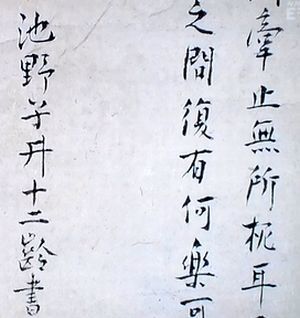 牽止無所柅耳
之間復有何樂可
池野子井十二齡書